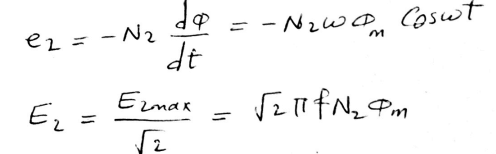 e₂ = -N₂ dφ/dt = -N₂ωΦₘ Cosωt
E₂ = E₂max/√2 = √2 π f N₂ Φₘ